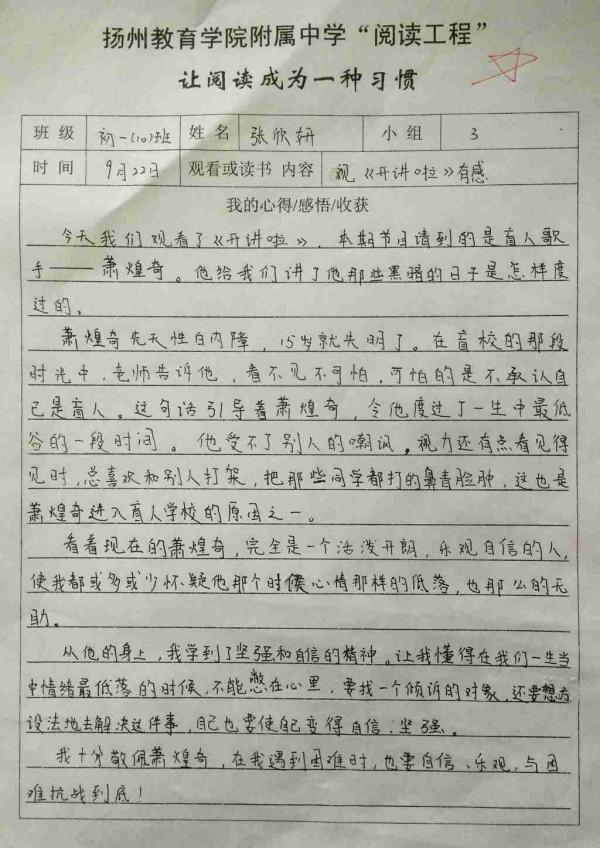 扬州教育学院附属中学“阅读工程”
让阅读成为一种习惯
班级 初一(10)班 姓名 张欣妍 小组 3
时间 9月22日 观看或读书 内容 观《开讲啦》有感
我的心得/感悟/收获
今天我们观看了《开讲啦》，本期节目请到的是盲人歌
手——萧煌奇。他给我们讲了他那些黑暗的日子是怎样度
过的。
萧煌奇先天性白内障，15岁就失明了。在盲校的那段
时光中，老师告诉他，看不见不可怕，可怕的是不承认自
己是盲人。这句话引导着萧煌奇，令他度过了一生中最低
谷的一段时间。他受不了别人的嘲讽，视力还有点看见得
见时，总喜欢和别人打架，把那些同学都打的鼻青脸肿，这也是
萧煌奇进入盲人学校的原因之一。
看看现在的萧煌奇，完全是一个活泼开朗，乐观自信的人，
使我都或多或少怀疑他那个时候心情那样的低落，也那么的无
助。
从他的身上，我学到了坚强和自信的精神。让我懂得在我们一生当
中情绪最低落的时候，不能憋在心里，要找一个倾诉的对象，还要想方
设法地去解决这件事，自己也要使自己变得自信、坚强。
我十分敬佩萧煌奇，在我遇到困难时，也要自信、乐观，与困
难抗战到底！